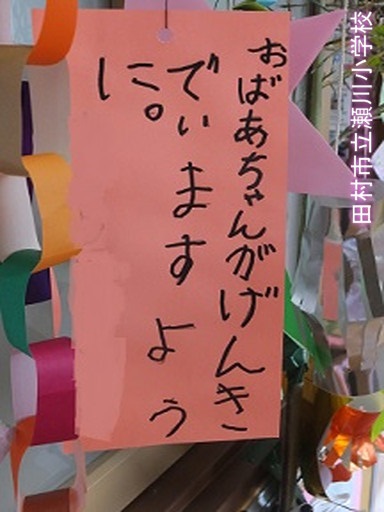 おばあちゃんがげんき
でいますよう
に。
田村市立瀬川小学校